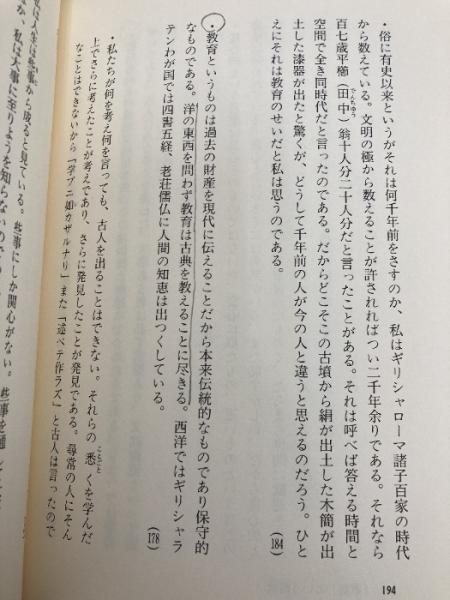 ・俗に有史以来というがそれは何千年前をさすのか、私はギリシャローマ諸子百家の時代
から数えている。文明の極から数えることが許されればつい二千年余りである。それなら
百七歳平櫛(田中)翁十人分二十人分だと言ったことがある。それは呼べば答える時間と
でんちゅう
空間で全き同時代だと言ったのである。だからどこそこの古墳から絹が出土した木簡が出
土した漆器が出たと驚くが、どうして千年前の人が今の人と違うと思えるのだろう。ひと
えにそれは教育のせいだと私は思うのである。
(184)
・教育というものは過去の財産を現代に伝えることだから本来伝統的なものであり保守的
なものである。洋の東西を問わず教育は古典を教えることに尽きる。西洋ではギリシャラ
テンわが国では四書五経、老荘儒仏に人間の知恵は出つくしている。
(178)
・私たちが何を考え何を言っても、古人を出ることはできない。それらの悉くを学んだ
ことごと
上でさらに考えたことが考えであり、さらに発見したことが発見である。尋常の人にそん
なことはできないから「学ブニ如カザルナリ」また「述ベテ作ラズ」と古人は言ったので
から成ると見ている。些事にしか関心がない。些事を通
か、私は大事に至りようを知らないの
194